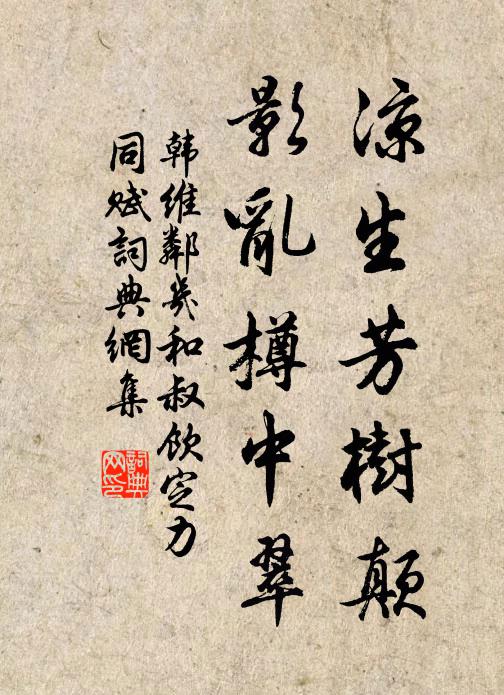 凉生芳樹顛
影亂樽中翠
韩維鄰幾和叔飲定力
同赋詞典網集
詞典网印